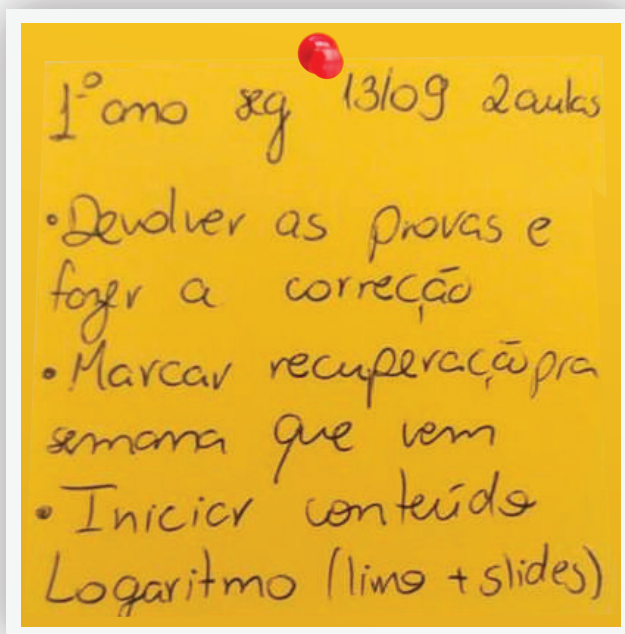 1º ano seg 13/09 2 aulas
• Devolver as provas e
fazer a correção
• Marcar recuperação pra
semana que vem
• Iniciar conteúdo
Logaritmo (livro + slides)